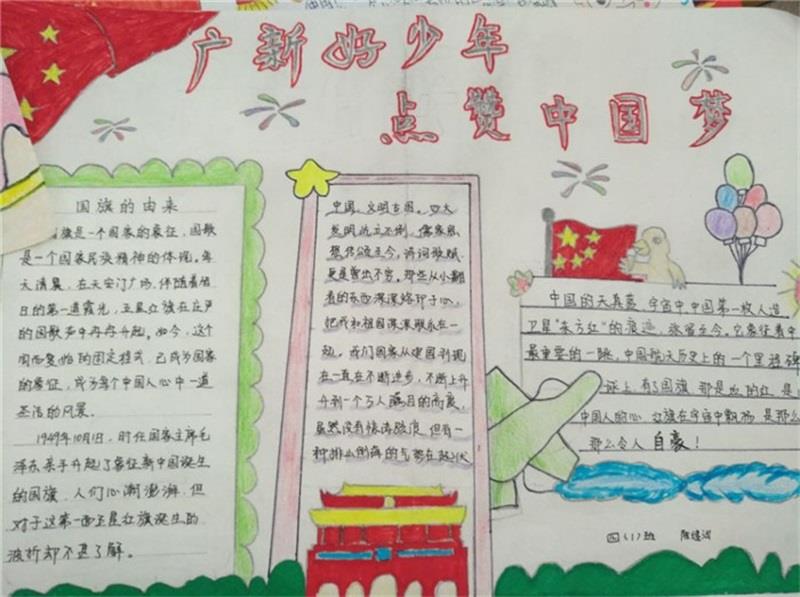 广新好少年
点赞中国梦
国旗的由来
国旗是一个国家的象征,国歌
是一个国家民族精神的体现。每
天清晨,在天安门广场,伴随着旭
日的第一道霞光,五星红旗在庄严
的国歌声中冉冉升起。如今,这个
周而复始的固定程式,已成为国家
的象征,成为每个中国人心中一道
圣洁的风景。
1949年10月1日,时任国家主席毛
泽东亲手升起了象征新中国诞生
的国旗,人们心潮澎湃,但
对于这第一面五星红旗诞生的
波折却不甚了解。
中国,文明古国。四大
发明屹立不倒,儒家思
想传颂至今,诗词歌赋
更是层出不穷。那些从小翻
看的东西深深烙印于心,
把我和祖国深深联系在一
起。我们国家从建国到现
在一直在不断进步,不断上升
升到一个万人瞩目的高度,
虽然没有惊涛骇浪,但有一
种排山倒海的气势在起伏
中国的天真蓝,宇宙中,中国第一枚人造
卫星"东方红"的痕迹,弥留至今。它象征着中
最重要的一跳,中国航天历史上的一个里程碑
上,有了国旗,那是血的红,是
中国人的心,红旗在宇宙中飘扬,是那么
那么令人自豪!
四(1)班